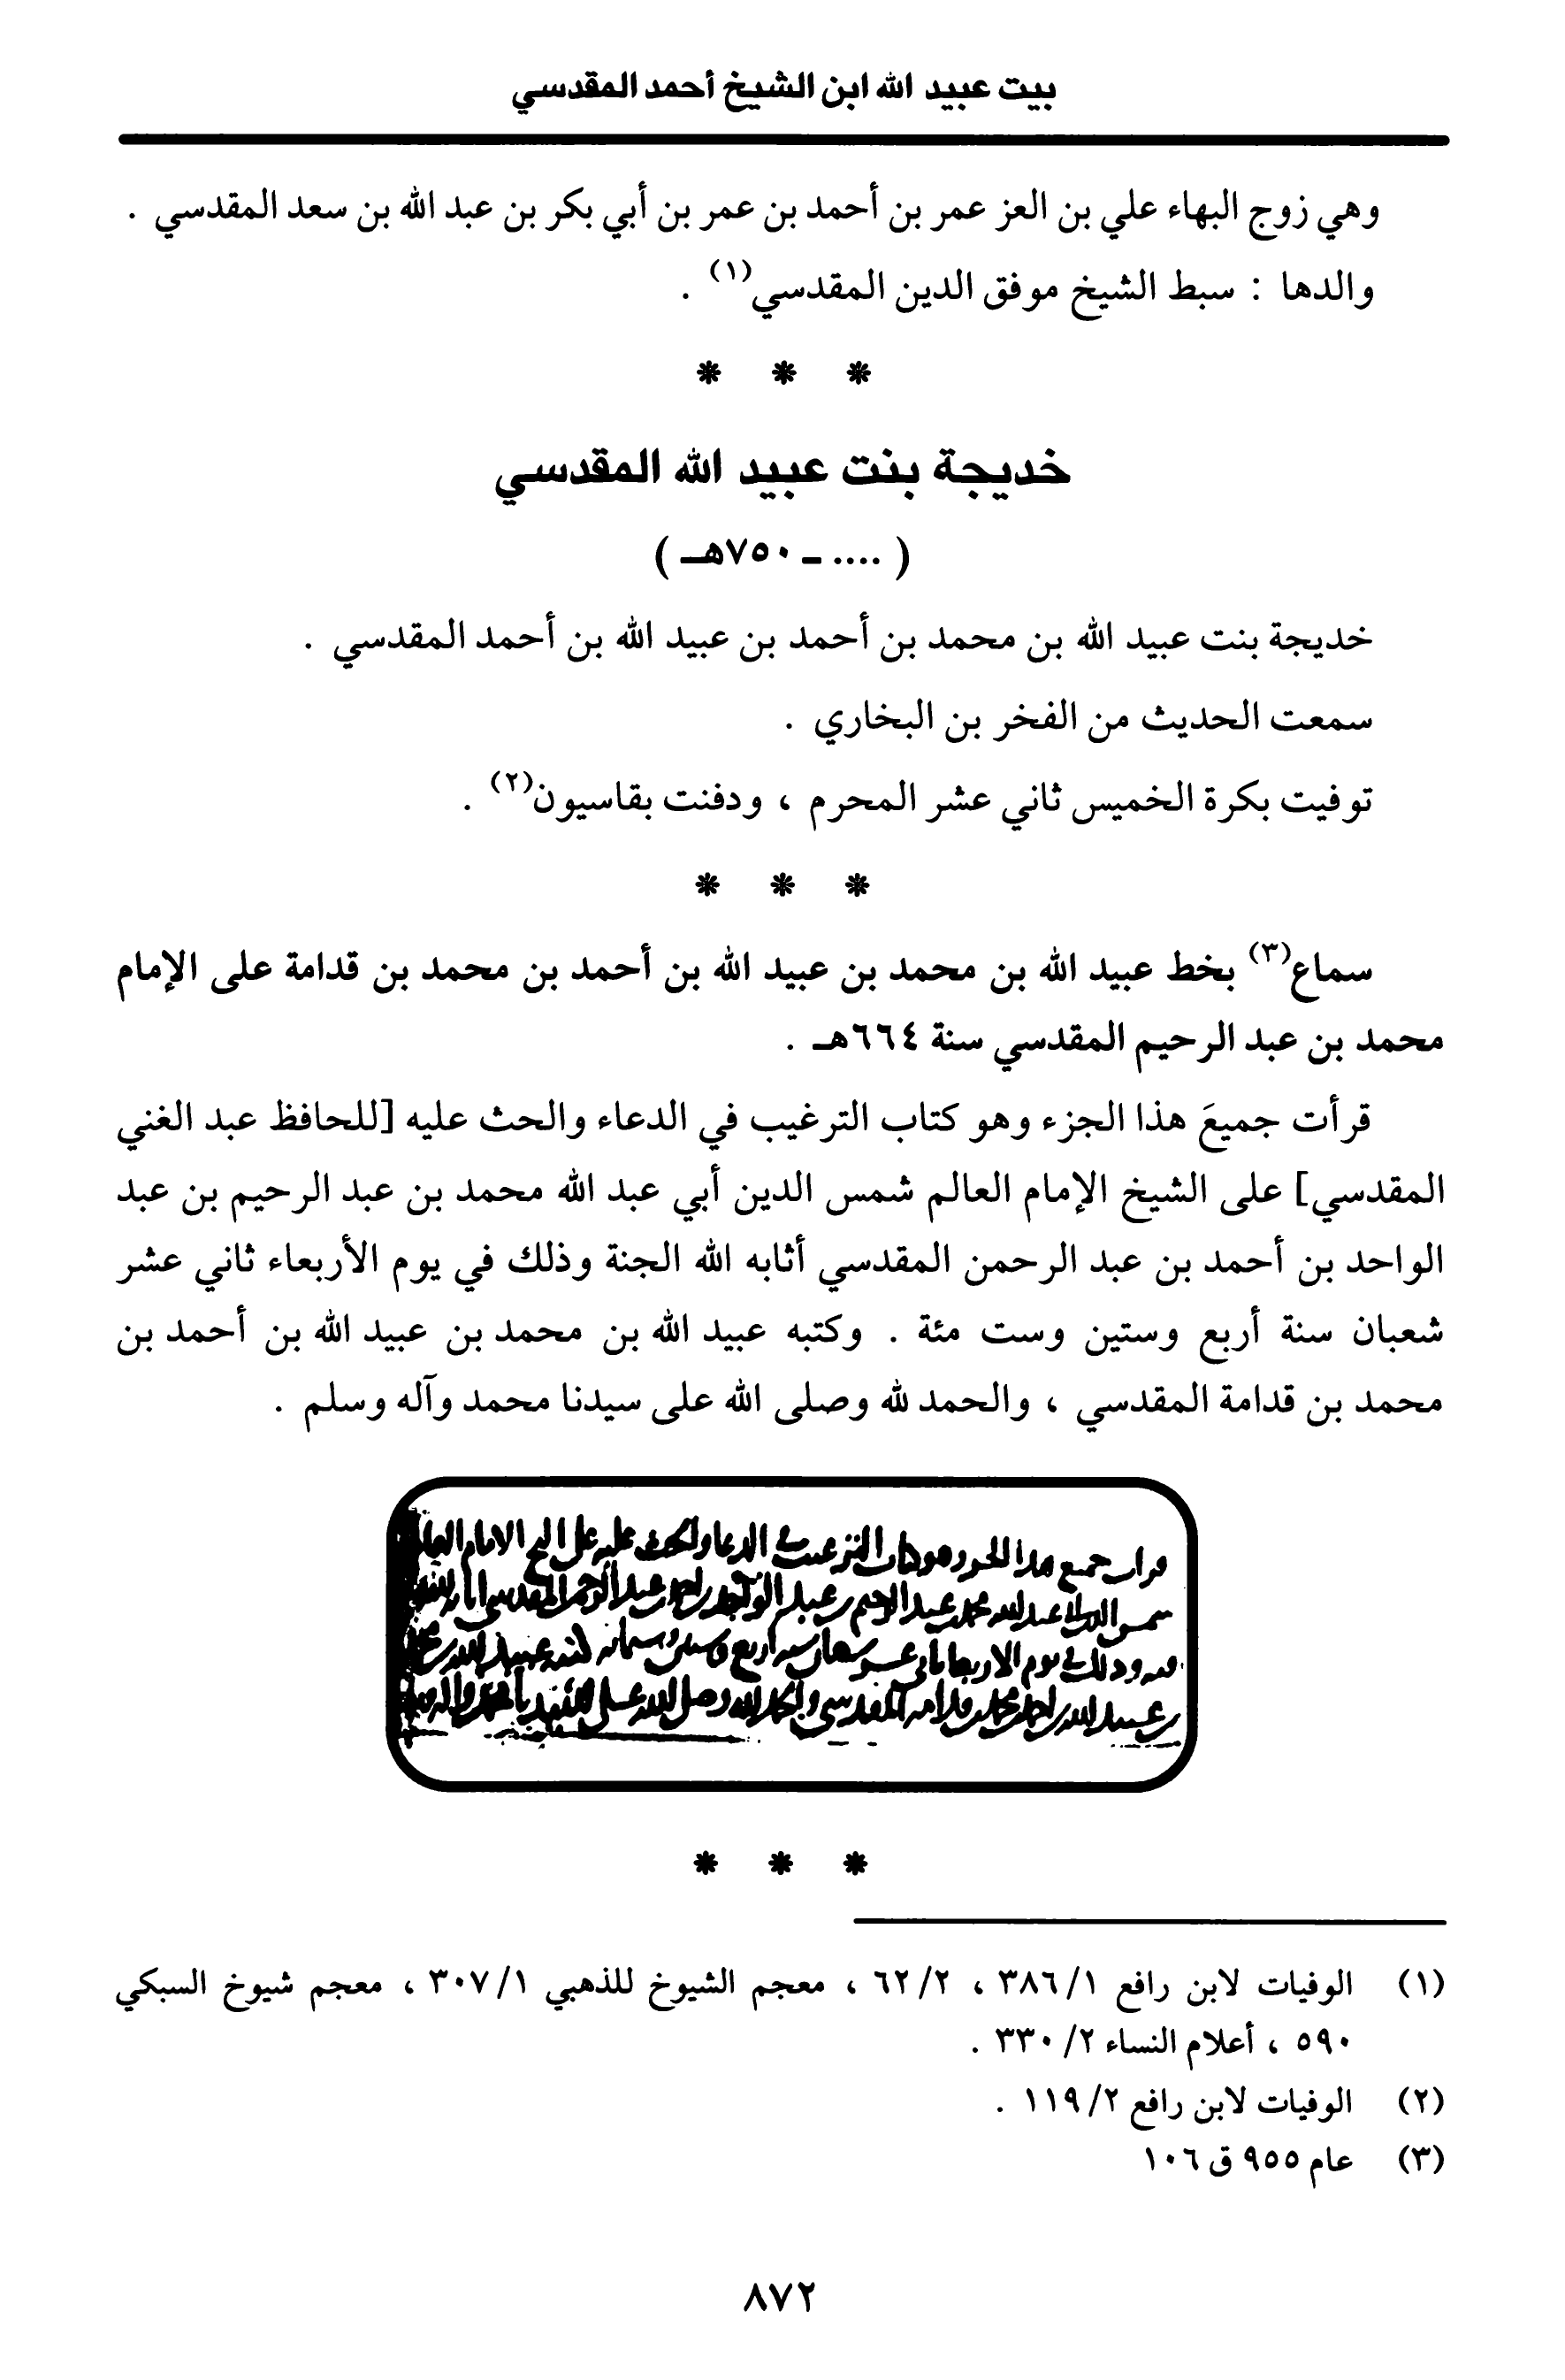 بيت عبيد الله ابن الشيخ أحمد المقدسي
وهي زوج البهاء علي بن العز عمر بن أحمد بن عمر بن أبي بكر بن عبد الله بن سعد المقدسي .
والدها : سبط الشيخ موفق الدين المقدسي(١) .
* * *
خديجة بنت عبيد الله المقدسي
( .... ــ ٧٥٠هـ )
خديجة بنت عبيد الله بن محمد بن أحمد بن عبيد الله بن أحمد المقدسي .
سمعت الحديث من الفخر بن البخاري .
توفيت بكرة الخميس ثاني عشر المحرم ، ودفنت بقاسيون(٢) .
* * *
سماع(٣) بخط عبيد الله بن محمد بن عبيد الله بن أحمد بن محمد بن قدامة على الإمام
محمد بن عبد الرحيم المقدسي سنة ٦٦٤هـ .
قرأت جميعَ هذا الجزء وهو كتاب الترغيب في الدعاء والحث عليه [للحافظ عبد الغني
المقدسي] على الشيخ الإمام العالم شمس الدين أبي عبد الله محمد بن عبد الرحيم بن عبد
الواحد بن أحمد بن عبد الرحمن المقدسي أثابه الله الجنة وذلك في يوم الأربعاء ثاني عشر
شعبان سنة أربع وستين وست مئة . وكتبه عبيد الله بن محمد بن عبيد الله بن أحمد بن
محمد بن قدامة المقدسي ، والحمد لله وصلى الله على سيدنا محمد وآله وسلم .
* * *
(١) الوفيات لابن رافع ١/ ٣٨٦ ، ٢/ ٦٢ ، معجم الشيوخ للذهبي ١/ ٣٠٧ ، معجم شيوخ السبكي
٥٩٠ ، أعلام النساء ٢/ ٣٣٠ .
(٢) الوفيات لابن رافع ٢/ ١١٩ .
(٣) عام ٩٥٥ ق ١٠٦
٨٧٢